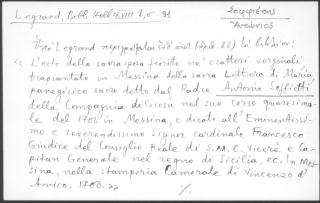 Legrand, Bibl. Hell. XVIII 1, σ. 91
Σοφφιέττι
Ἀντώνιος
Ὑπὸ Legrand περιγράφεται
τὸ βιβλίον:
« L'orto della sovraspina fiorito ne' crattori verginali
trapiantato in Messina della sacra Lettera di Maria,
panegirico sacro detto dal Padre Antonio Soffietti
della Compagnia di Giesù nel suo corso quaresima-
le del 1708 in Messina, e dicato all' Eminentissi-
mo e reverendissimo Signor Cardinale Francesco
Giudice del Consiglio Reale di S.M.C. Vicerè e Ca-
pitan Generale nel regno di Sicilia, ec. In Mes-
sina, nella stamperia Camerale di Vincenzo d'
Amico. 1708. »
./.